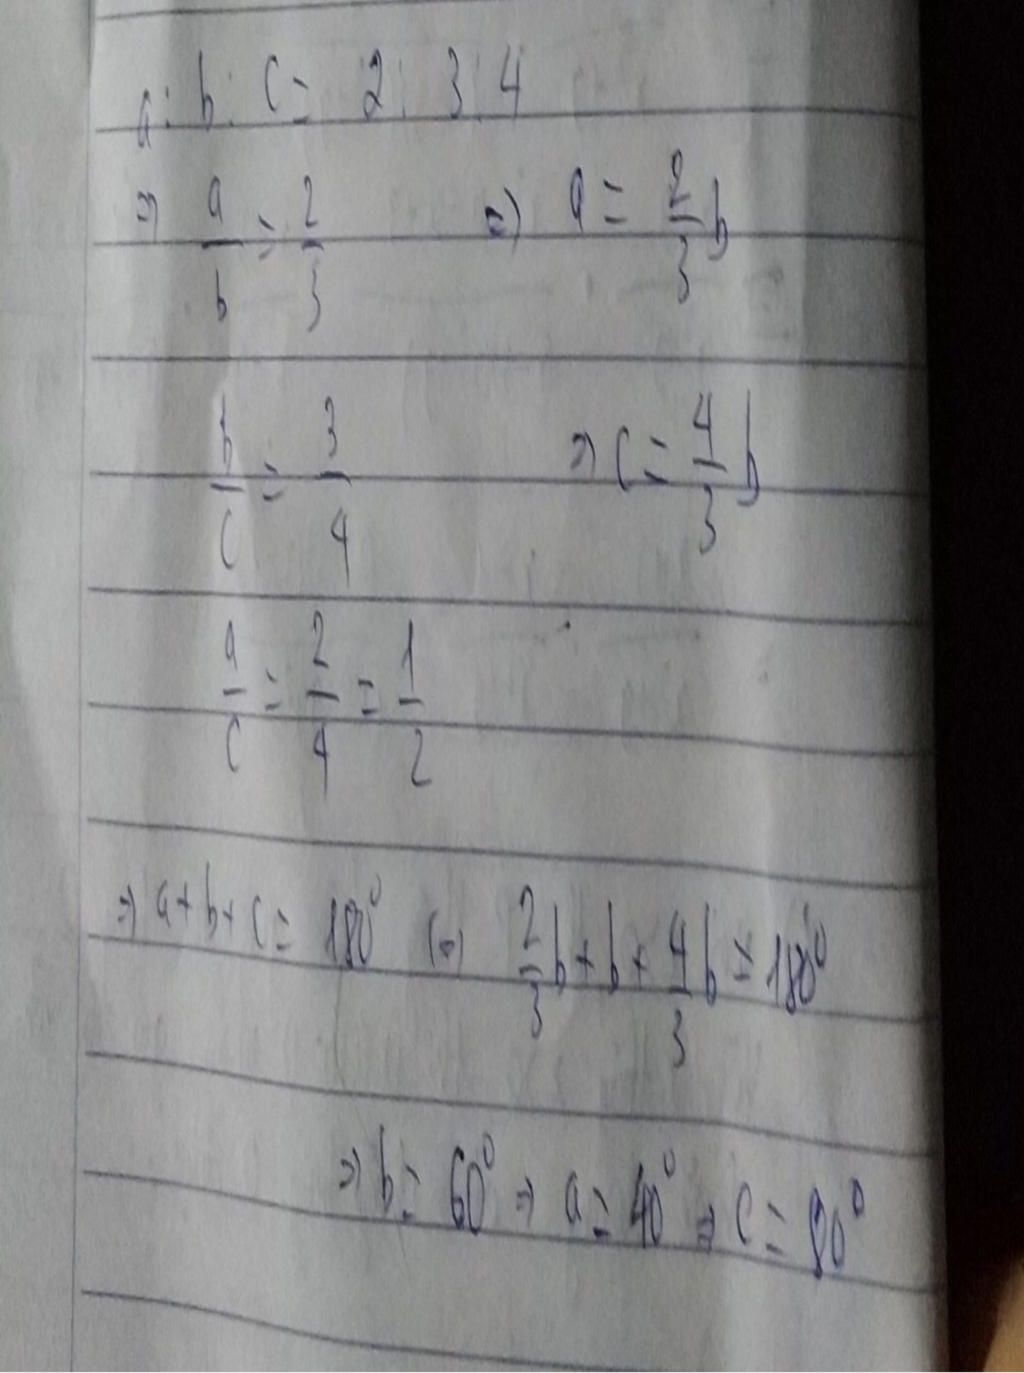 a : b : c = 2 : 3 : 4
⇒ a/b = 2/3 ⇒ a = 2/3 b
b/c = 3/4 ⇒ c = 4/3 b
a/c = 2/4 = 1/2
⇒ a + b + c = 180° (⇒) 2/3 b + b + 4/3 b = 180°
⇒ b = 60° ⇒ a = 40° ⇒ c = 80°